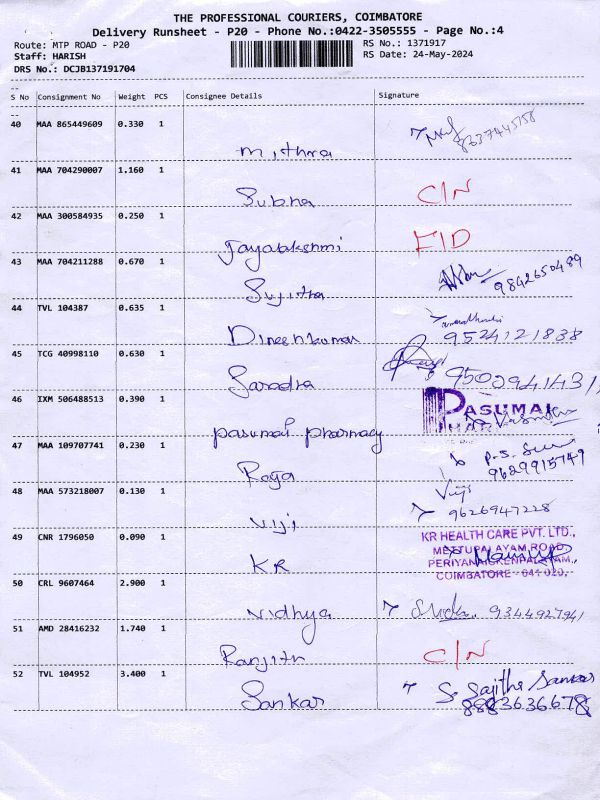 THE PROFESSIONAL COURIERS, COIMBATORE
Delivery Runsheet - P20 - Phone No.:0422-3505555 - Page No.:4
Route: MTP ROAD - P20 RS No.: 1371917
Staff: HARISH RS Date: 24-May-2024
DRS No.: DCJB137191704
S No Consignment No Weight PCS Consignee Details Signature
40 MAA 865449609 0.330 1
Mithra 8637445158
41 MAA 704290007 1.160 1
Subha C/N
42 MAA 300584935 0.250 1
Jayalakshmi F/D
43 MAA 704211288 0.670 1
Sujitha 9842650489
44 TVL 104387 0.635 1
Dineshkumar 9524121838
45 TCG 40998110 0.630 1
Saradha 9502941431
46 IXM 506488513 0.390 1 PASUMAI
pasumai pharmacy
47 MAA 109707741 0.230 1 P.S.
Raja 9629915749
48 MAA 573218007 0.130 1 Viji
Viji 9626947228
49 CNR 1796050 0.090 1 KR HEALTH CARE PVT. LTD.,
METTUPALAYAM ROAD,
KR PERIYANAICKENPALAYAM,
COIMBATORE - 641 020.
50 CRL 9607464 2.900 1
Vidhya 9344927941
51 AMD 28416232 1.740 1
Ranjith C/N
52 TVL 104952 3.400 1 S. Sajitha Sankar
Sankar 8883636678